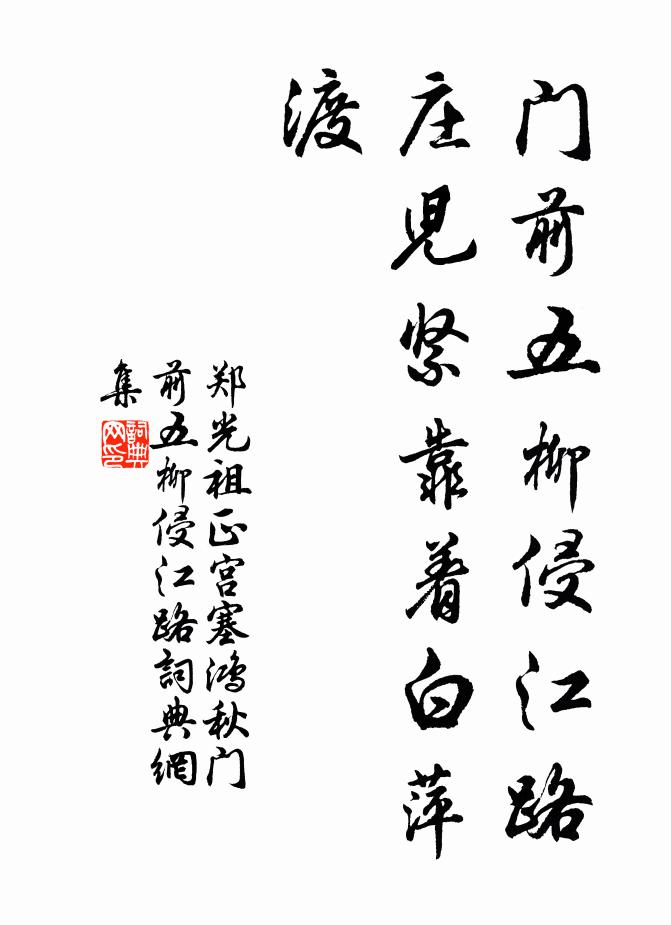 门前五柳侵江路
庄児紧靠着白萍
渡
郑光祖正宫塞鸿秋门
前五柳侵江路詞典網
集
詞典
网印